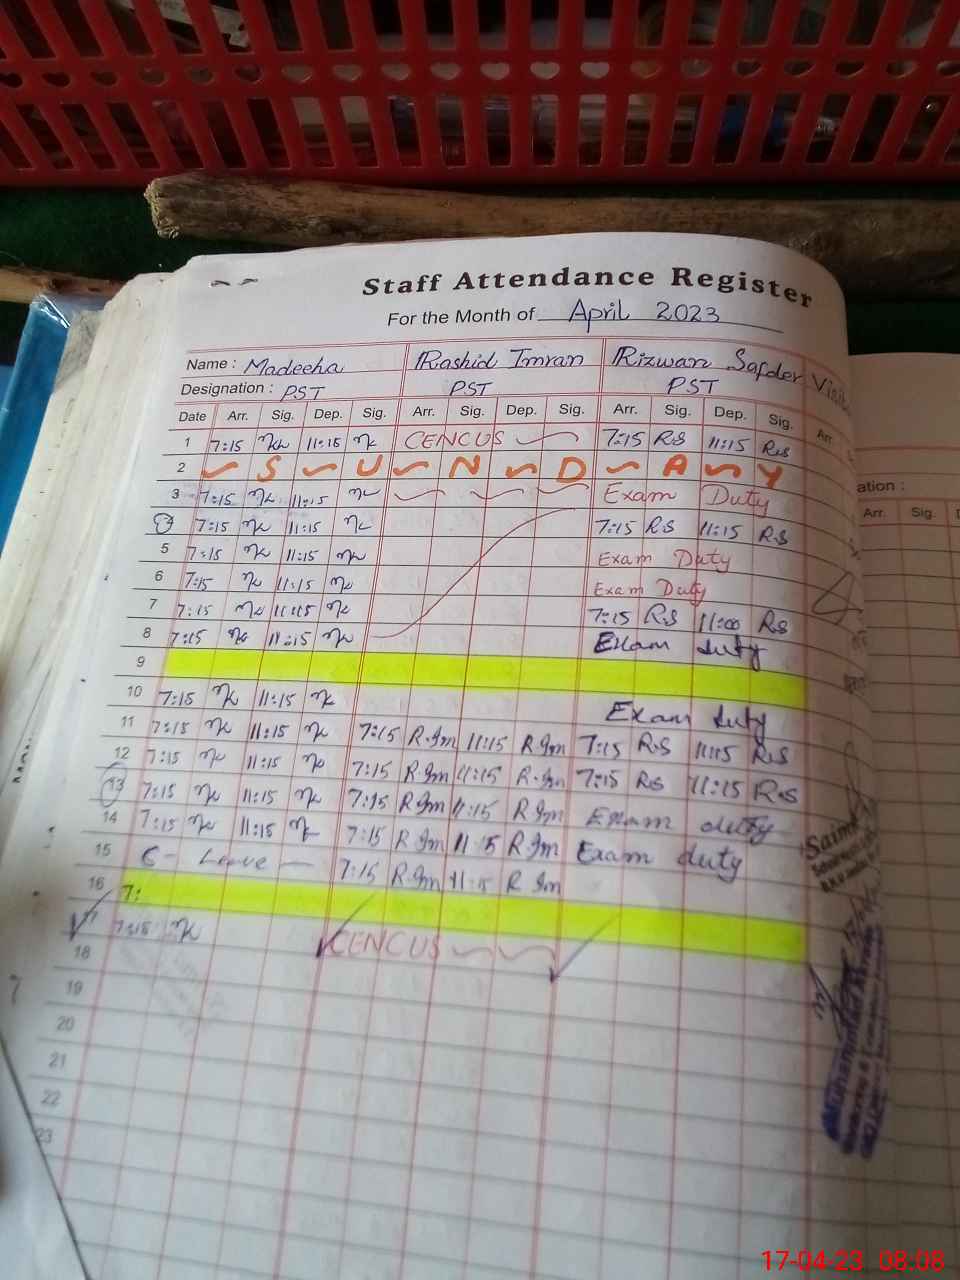 Staff Attendance Register
For the Month of April 2023
Name : Madeeha Rashid Imran Rizwan Safder
Designation : PST PST PST
Date Arr. Sig. Dep. Sig. Arr. Sig. Dep. Sig. Arr. Sig. Dep. Sig. Arr.
1 7:15 11:15 CENCUS 7:15 R.S 11:15 R.S
2 S U N D A Y
3 7:15 11:15 Exam Duty
4 7:15 11:15 7:15 R.S 11:15 R.S
5 7:15 11:15 Exam Duty
6 7:15 11:15 Exam Duty
7 7:15 11:15 7:15 R.S 11:00 R.S
8 7:15 11:15 Exam duty
9
10 7:15 11:15 Exam duty
11 7:15 11:15 7:15 R.Im 11:15 R Im 7:15 R.S 11:15 R.S
12 7:15 11:15 7:15 R.Im 11:15 R.Im 7:15 RS 11:15 R.S
13 7:15 11:15 7:15 R Im 11:15 R Im Exam duty
14 7:15 11:15 7:15 R Im 11:15 R Im Exam duty
15 C- Leave 7:15 R.Im 11:15 R Im
16 7:
17 7:15 CENCUS
18
19
20
21
22
23
ation :
Arr. Sig.
17-04-23 08:08